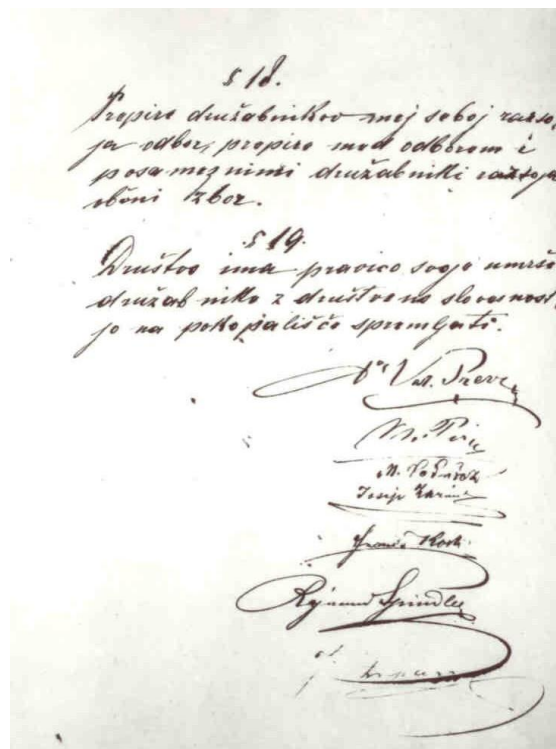 § 18.
Prepire družabnikov mej seboj razso
ja odbor, prepire med odborom i
posameznimi družabniki razsoja
občni zbor.
§ 19.
Društvo ima pravico svoje umrše
družabnike z društveno slovesnost
jo na pokopališče spremljati.
Dr Val. Prevc
M.
Josip
Kosk
Spindler